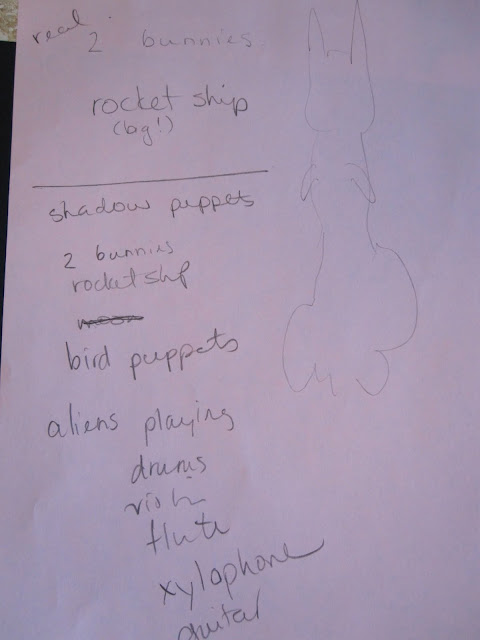 real
2 bunnies
rocket ship
(big!)
shadow puppets
2 bunnies
rocket ship
bird puppets
aliens playing
drums
flute
xylophone
guitar